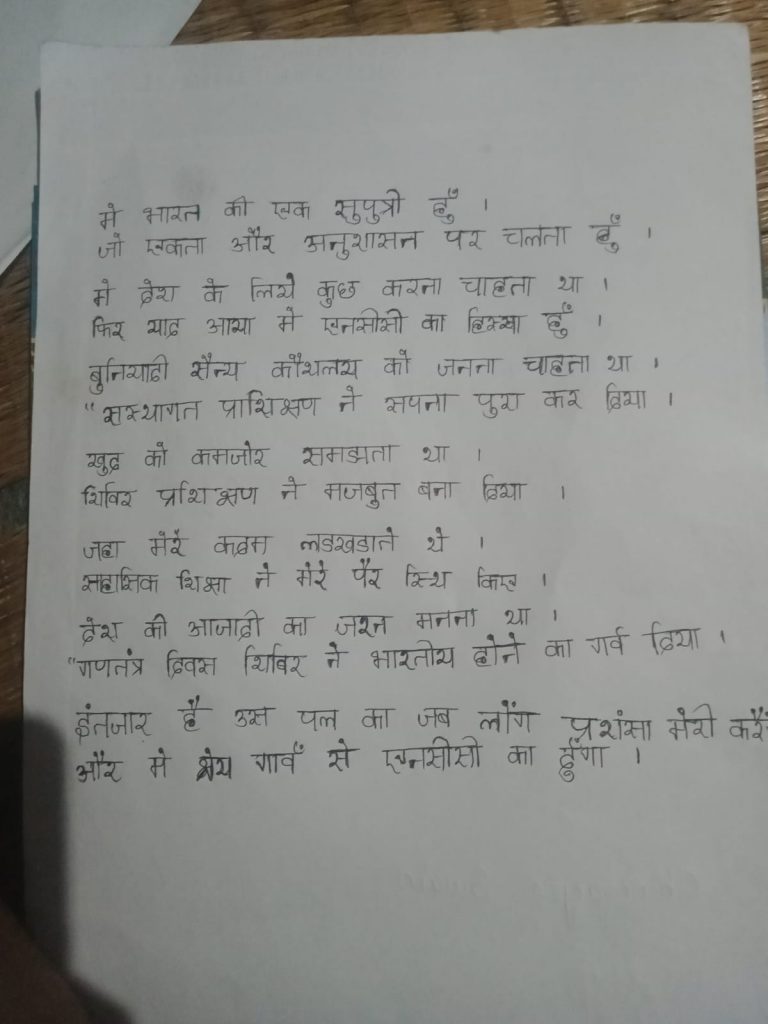 मे भारत की एक सुपुत्री हुँ ।
जो एकता और अनुशासन पर चलता हुँ ।
मे देश के लिये कुछ करना चाहता था ।
फिर याद आया मे एनसीसी का हिस्सा हुँ ।
बुनियादी सैन्य कौशलय को जनना चाहता था ।
"सस्थागत प्राशिक्षण ने सपना पुरा कर दिया ।
खुद को कमजोर समझता था ।
शिविर प्रशिक्षण ने मजबुत बना दिया ।
जहा मेरे कदम लडखडाते थे ।
सहासिक शिक्षा ने मेरे पैर स्थि किए ।
देश की आजादी का जश्न मनना था ।
"गणतंत्र दिवस शिविर ने भारतीय होने का गर्व दिया ।
इंतजार है उस पल का जब लोंग प्रशंसा मेरी करें
और मे श्रेय गावँ से एनसीसी का दुँगा ।